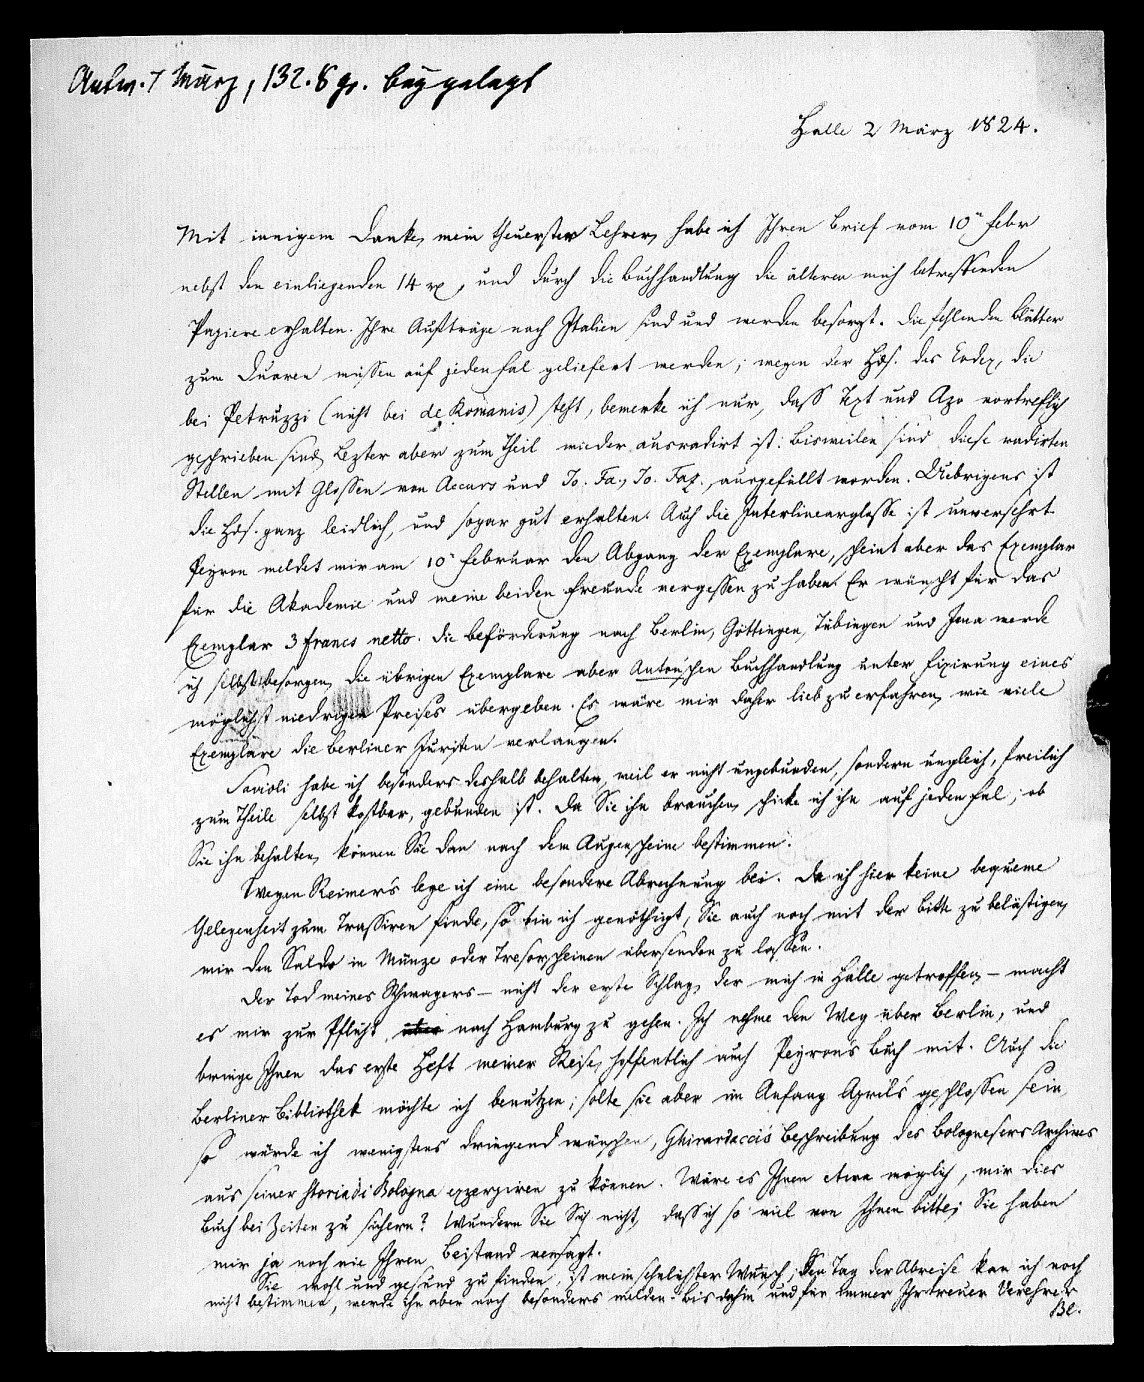 Antw. 7 März, 132. 8 gr. beygelegt
Halle 2 März 1824.
Mit innigem Danke, mein theuerster Lehrer, habe ich Ihren Brief vom 10n Febr
nebst den einliegenden 14 , und durch die Buchhandlung die älteren mich betreffenden
Papiere erhalten. Ihre Aufträge nach Italien sind und werden besorgt. Die fehlenden Blätter
zum Duaren müssen auf jeden Fal geliefert werden; wegen der Hds. des Codex, die
bei Petruzzi (nicht bei de Romanis) steht, bemerke ich nur, dass Text und Azo vortreflich
geschrieben sind, Lezter aber zum Theil wieder ausradirt ist. Bisweilen sind diese radirten
Stellen mit Glossen von Accurs und Jo. Fa., Jo. Faz., ausgefüllt worden. Uebrigens ist
die Hds. ganz leidlich, und sogar gut erhalten. Auch die Interlinearglosse ist unversehrt.
Peyron meldet mir am 10n Februar den Abgang der Exemplare, scheint aber das Exemplar
für die Akademie und meine beiden Freunde vergessen zu haben. Er wünscht für das
Exemplar 3 francs netto. Die Beförderung nach Berlin, Göttingen, Tübingen und Jena werde
ich selbst besorgen, die übrigen Exemplare aber Anton'schen Buchhandlung unter Fixirung eines
möglichst niedrigen Preises übergeben. Es wäre mir daher lieb zu erfahren, wie viele
Exemplare die Berliner Juristen verlangen.
Savioli habe ich besonders deshalb behalten, weil er nicht ungebunden, sondern ungleich, freilich
zum Theile selbst kostbar, gebunden ist. Da Sie ihn brauchen, schicke ich ihn auf jeden Fal; ob
Sie ihn behalten, können Sie dan nach dem Augenscheine bestimmen.
Wegen Reimers lege ich eine besondere Abrechnung bei. Da ich hier keine bequeme
Gelegenheit zum Trassiren finde, so bin ich genöthigt, Sie auch noch mit der Bitte zu belästigen,
mir den Saldo in Münze oder Tresorscheinen übersenden zu lassen.
Der Tod meines Schwagers – nicht der erste Schlag, der mich in Halle getroffen, – macht
es mir zur Pflicht, nach Hamburg zu gehen. Ich nehme den Weg über Berlin, und
bringe Ihnen das erste Heft meiner Reise, hoffentlich auch Peyron's Buch mit. Auch die
Berliner Bibliothek möchte ich benutzen; solte sie aber im Anfang Aprils geschlossen sein,
so würde ich wenigstens dringend wünschen, Ghirardacci's Beschreibung des Bologneser Archives
aus seiner storia di Bologna exzerpiren zu können. Wäre es Ihnen etwa möglich, mir dies
Buch bei Zeiten zu sichern? Wundern Sie Sich nicht, dass ich so viel von Ihnen bitte; Sie haben
mir ja noch nie Ihren Beistand versagt.
Sie wohl und gesund zu finden, ist mein sehnlichster Wunsch; Den Tag der Abreise kan ich noch
nicht bestimmen, werde ihn aber noch besonders melden. Bis dahin und für immer Ihr treuer Verehrer
Bl.